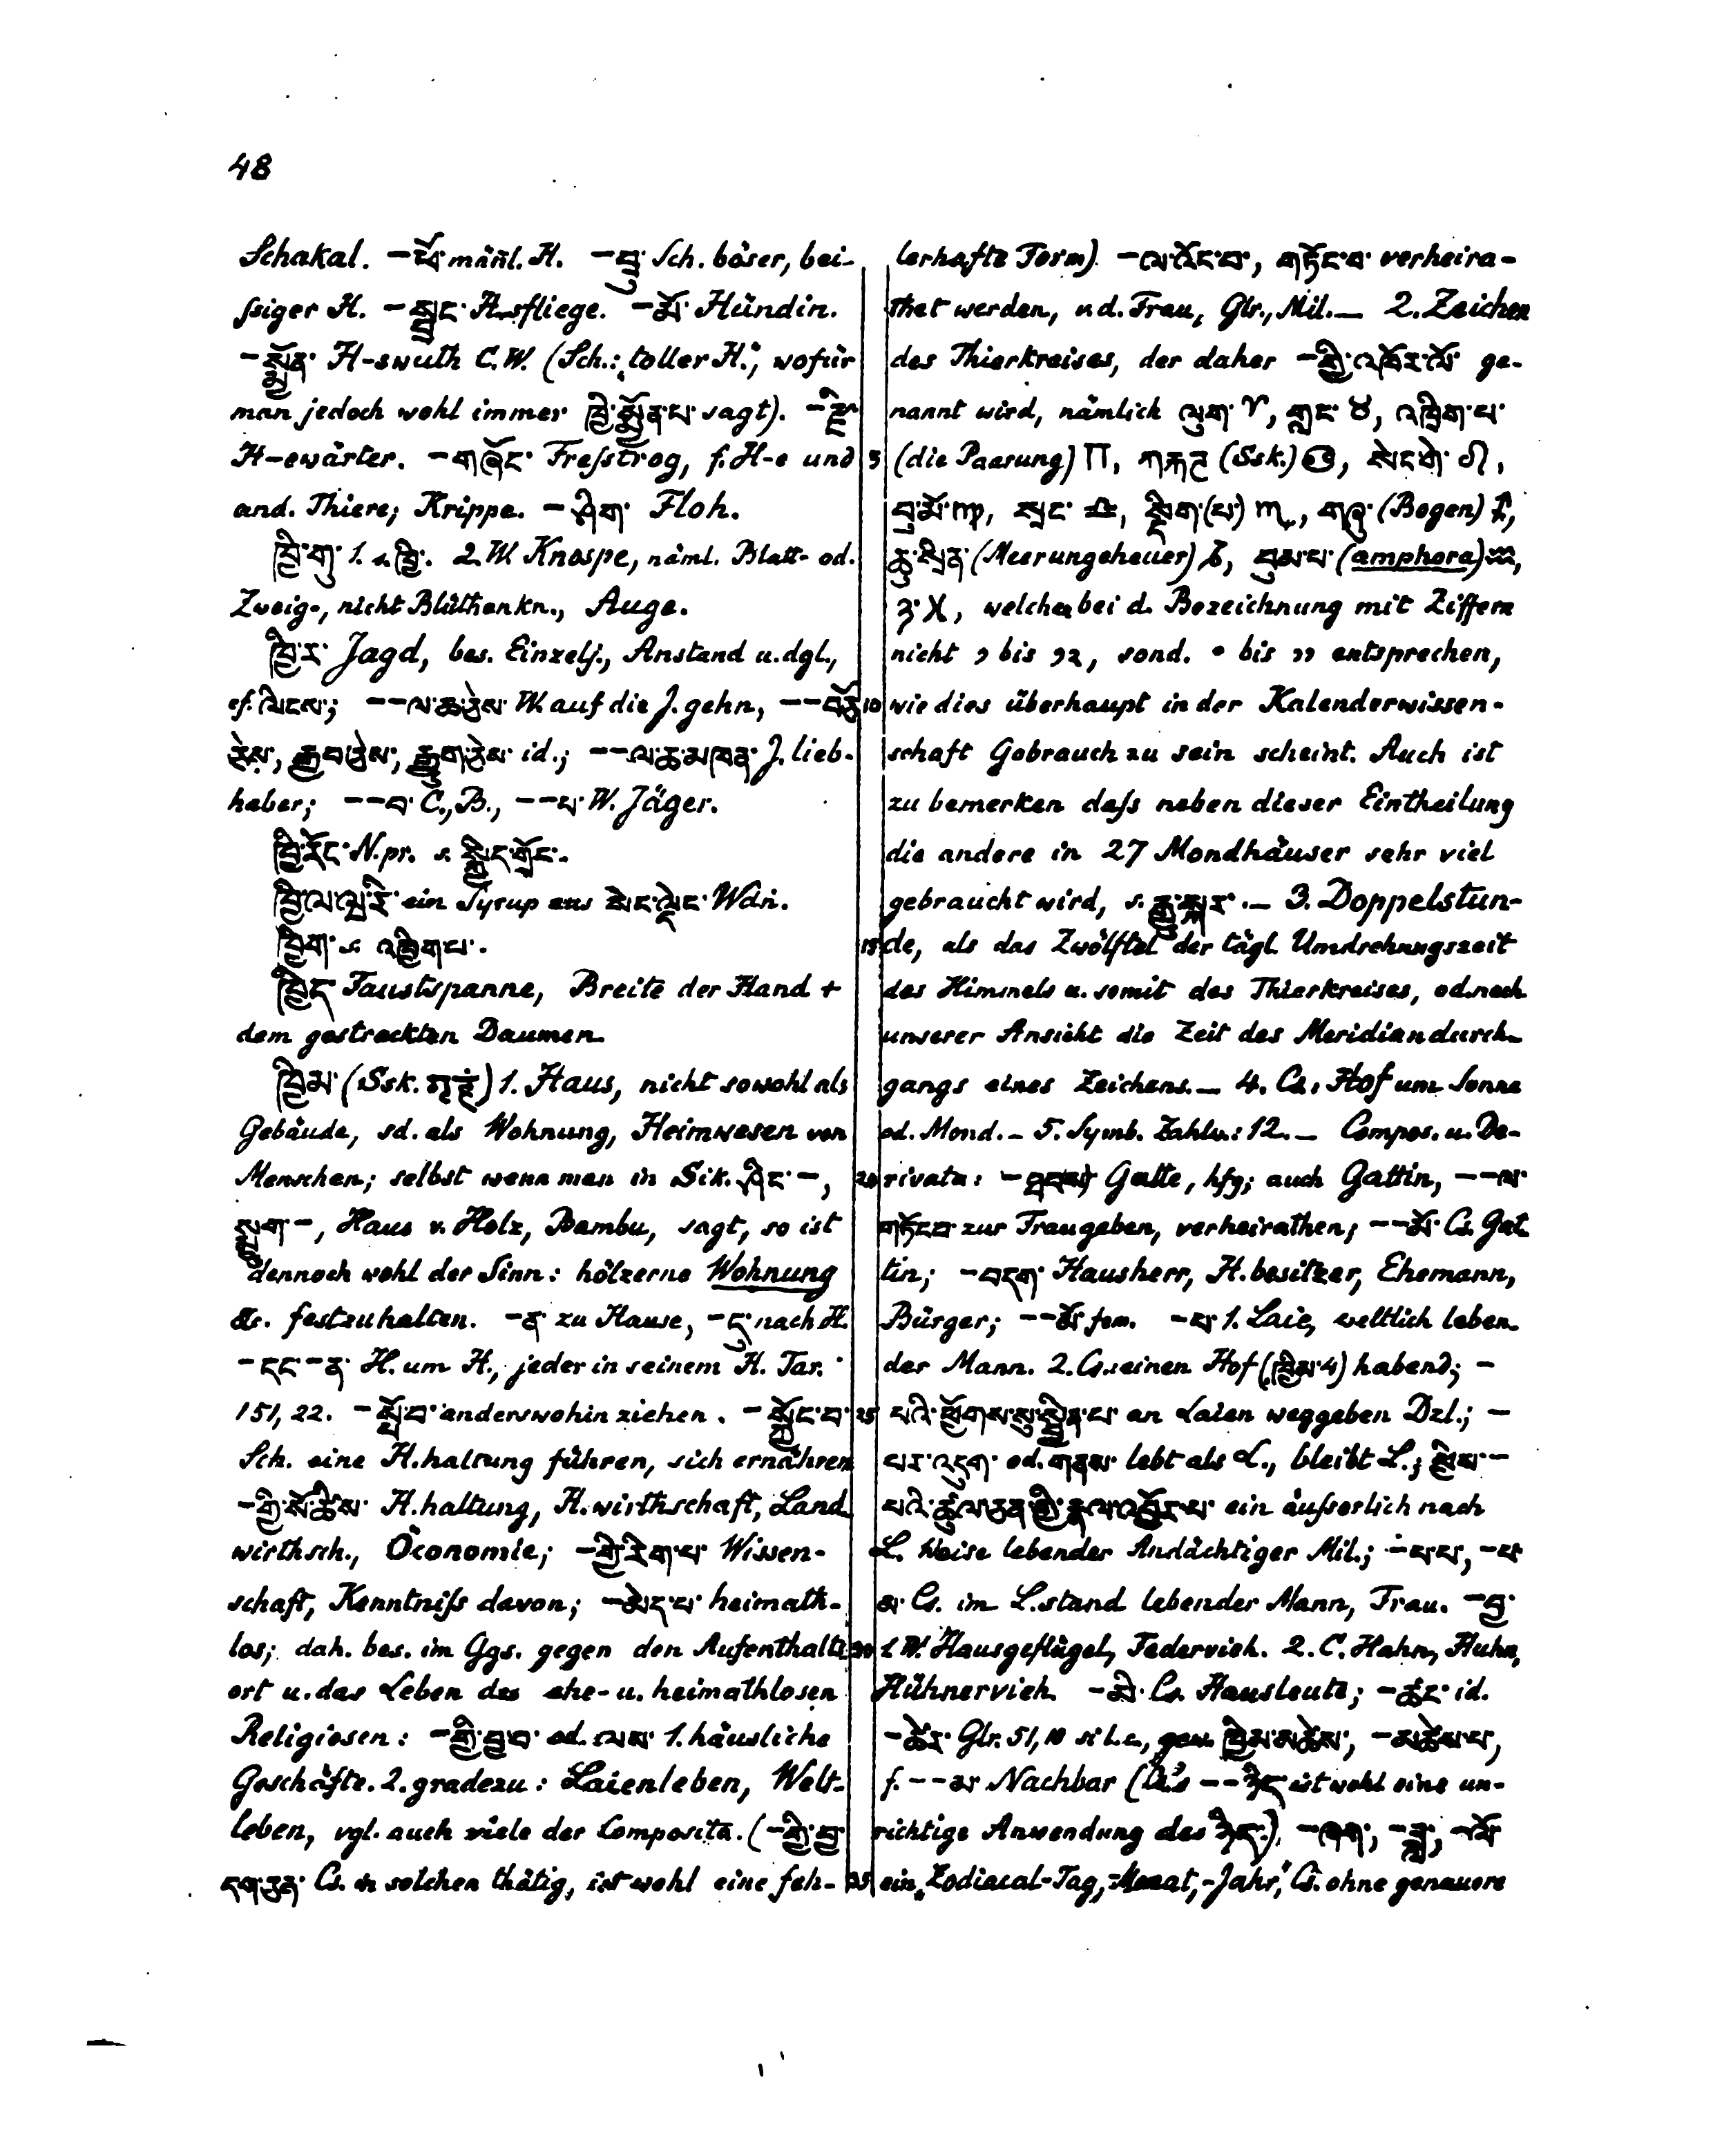 48
Schakal. –ཕོ་ männl. H. –བྲུ་ Sch. böser, bei-
ſsiger H. –སྦྲང་ H-sfliege. –མོ་ Hündin.
–སྨྱོན་ H-swuth C.W. (Sch.: „toller H.", wofür
man jedoch wohl immer ཁྱི་སྨྱོན་པ་ sagt). –རྫི་
H-ewärter. –གཞོང་ Freſstrog, f. H-e und
and. Thiere; Krippe. –ཤིག་ Floh.
ཁྱི་གུ་ 1. s. ཁྱི་. 2. W. Knospe, näml. Blatt- od.
Zweig-, nicht Blüthenkn., Auge.
ཁྱི་ར་ Jagd, bes. Einzelj., Anstand u. dgl.,
cf. ལིངས་; ––ལ་ཆ་ཅེས་ W. auf die J. gehn, ––
རྒྱབ་ཅེས་, རྒྱུག་ཅེས་ id.; ––ལ་ཆ་མཁན་ J. lieb-
haber; ––བ་ C., B., ––པ་ W. Jäger.
ཁྱི་རོང་ N. pr. s. སྐྱིད་གྲོང་.
ཁྱི་ལ་ལྭ་རི་ ein Syrup aus སེང་ལྡེང་ Wdn.
ཁྱིག་ s. འཁྱིག་པ་.
ཁྱིད་ Faustspanne, Breite der Hand +
dem gestreckten Daumen.
ཁྱིམ་ (Ssk. गृहं) 1. Haus, nicht sowohl als
Gebäude, sd. als Wohnung, Heimwesen von
Menschen; selbst wenn man in Sik. ཤིང་ –,
སྨྱུག་ –, Haus v. Holz, Bambu, sagt, so ist
dennoch wohl der Sinn: hölzerne Wohnung
&c. festzuhalten. –ན་ zu Hause, –དུ་ nach H.
–དང་–ན་ H. um H., jeder in seinem H. Tar.
151, 22. –སྤོ་བ་ anderswohin ziehen. –སྐྱོང་བ་
Sch. eine H.haltung führen, sich ernähren
–གྱི་སོ་ཚིས་ H.haltung, H.wirthschaft, Land
wirthsch., Öconomie; –གྱི་རིག་པ་ Wissen-
schaft, Kenntniſs davon; –མེད་པ་ heimath-
los; dah. bes. im Ggs. gegen den Aufenthalts
ort u. das Leben des ehe- u. heimathlosen
Religiosen: –གྱི་བྱ་བ་ od. ལས་ 1. häusliche
Geschäfte. 2. gradezu: Laienleben, Welt-
leben, vgl. auch viele der Composita. (–གྱི་བྱ་
Cs. in solchen thätig, ist wohl eine feh-
lerhafte Form). –ལ་འོང་བ་, གཏོང་བ་ verheira-
thet werden, v. d. Frau, Glr., Mil.— 2. Zeichen
des Thierkreises, der daher –གྱི་འཁོར་ལོ་ ge-
nannt wird, nämlich ལུག་ ♈, གླང་ ♉, འཁྲིག་པ་
(die Paarung) ♊, ཀརྐཊ (Ssk.) ♋, སེང་གེ་ ♌,
བུ་མོ་ ♍, སྲང་ ♎, སྡིག་(པ་) ♏, གཞུ་ (Bogen) ♐,
ཆུ་སྲིན་ (Meerungeheuer) ♑, བུམ་པ་ (amphora) ♒,
ཉ་ ♓, welche bei d. Bezeichnung mit Ziffern
nicht ༡ bis ༡༢, sond. ༠ bis ༡༡ entsprechen,
wie dies überhaupt in der Kalenderwissen-
schaft Gebrauch zu sein scheint. Auch ist
zu bemerken daſs neben dieser Eintheilung
die andere in 27 Mondhäuser sehr viel
gebraucht wird, s. རྒྱུ་སྐར་.— 3. Doppelstun-
de, als das Zwölftel der tägl. Umdrehungszeit
des Himmels u. somit des Thierkreises, od. nach
unserer Ansicht die Zeit des Meridiandurch-
gangs eines Zeichens.— 4. Cs.: Hof um Sonne
od. Mond.– 5. Symb. Zahlw.: 12.— Compos. u. De-
rivata: –ཐབ(ས) Gatte, hfg; auch Gattin, ––ལ་
གཏོང་བ་ zur Frau geben, verheirathen; ––མོ་ Cs. Gat
tin; –བདག་ Hausherr, H.besitzer, Ehemann,
Bürger; ––མོ་ fem. –པ་ 1. Laie, weltlich leben-
der Mann. 2. Cs.: einen Hof (ཁྱིམ་ 4) habend; –
པའི་ཕྱོགས་སུ་སྦྱིན་པ་ an Laien weggeben Dzl.; –
པར་འདུག་ od. གནས་ lebt als L., bleibt L.; ཁྱིམ་ –
པའི་ཚུལ་ཅན་གྱི་རྣལ་འབྱོར་པ་ ein äuſserlich nach
L. Weise lebender Andächtiger Mil.; –པ་པ་, –པ་
མ་ Cs. im L.stand lebender Mann, Frau. –བྱ་
1. W. Hausgeflügel, Federvieh. 2. C. Hahn, Huhn,
Hühnervieh. –མི་ Cs. Hausleute; –ཚང་ id.
–ཚེར་ Glr. 51, 10 si l. c., gew. ཁྱིམ་མཚེས་, –མཚེས་པ་,
f. ––མ་ Nachbar (Cs's ––ཉིད་ ist wohl eine un-
richtige Anwendung des ཉིད་). –ཞག་, –ཟླ་, –ལོ་
ein „Zodiacal-Tag, -Monat, -Jahr", Cs. ohne genauere